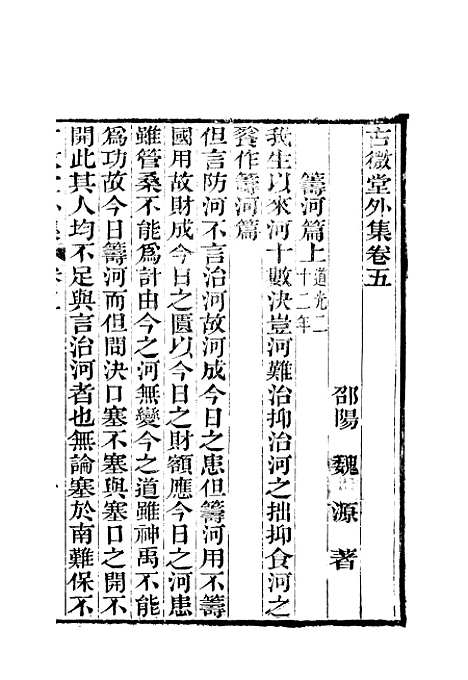 古微堂外集卷五
邵陽 魏 源 著
籌河篇上道光二十二年
我生以來河十數決豈河難治抑治河之拙抑食河之
餮作籌河篇
但言防河不言治河故河成今日之患但籌河用不籌
國用故財成今日之匱以今日之財額應今日之河患
雖管桑不能為計由今之河無變今之道雖神禹不能
為功故今日籌河而但問決口塞不塞與塞口之開不
開此其人均不足與言治河者也無論塞於南難保不